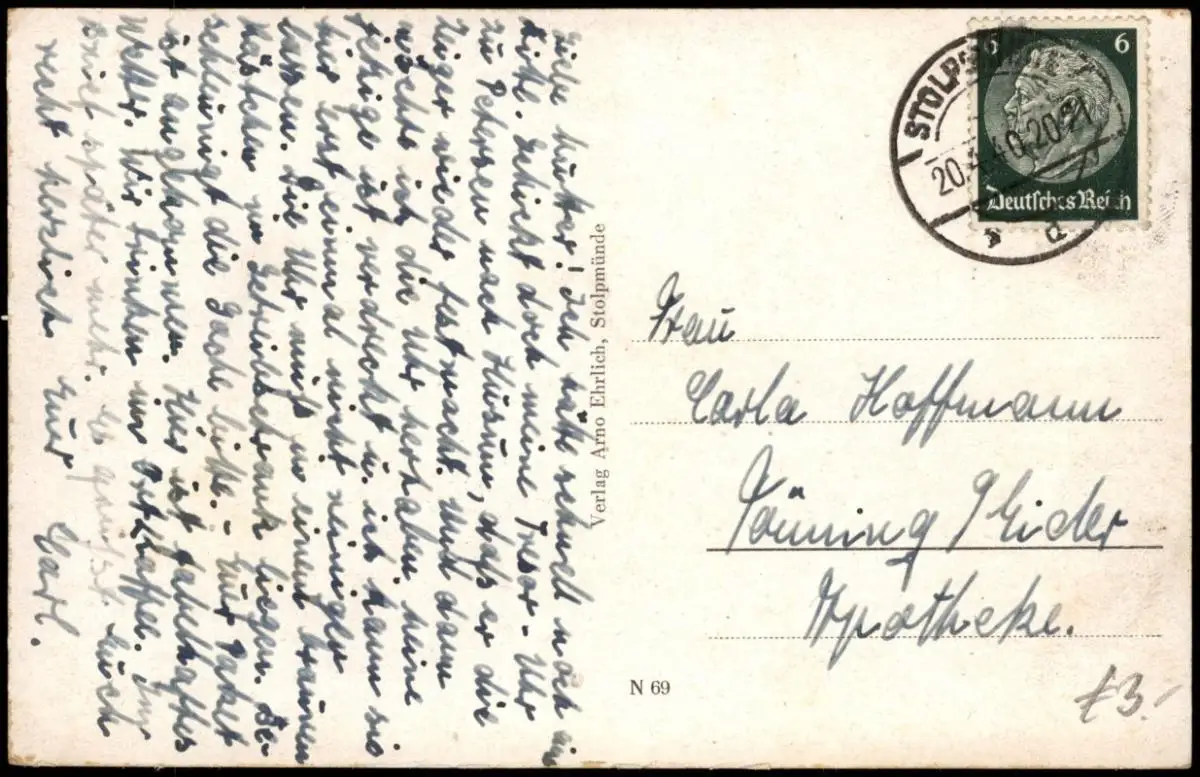 Liebe Mutter! Ich hätte schnell noch ein
Bitte. Schickt doch meine Tresor-Uhr
zu Petersen nach Husum, daß er die
Zeiger wieder festmacht. Und dann
möchte ich die Uhr herhaben. Meine
jetzige ist verdreckt u. ich kann sie
hir erst einmal nicht reinigen
lassen. Die Uhr muß in einem braunen
Kästchen im Getreideschrank liegen. Be-
schleunigt die Sache bitte. - Euer Paket
ist angekommen. Hier ist fabelhaftes
Wetter. Wir trinken im Im
Brief später mehr. Es grüßt Euch
recht herzlich Euer Carl.
Verlag Arno Ehrlich, Stolpmünde
6 6
Deutsches Reich
STOLP
20.4.40.20-21
a
Frau
Carla Hoffmann
Tönning/Eider
Apotheke.
N 69